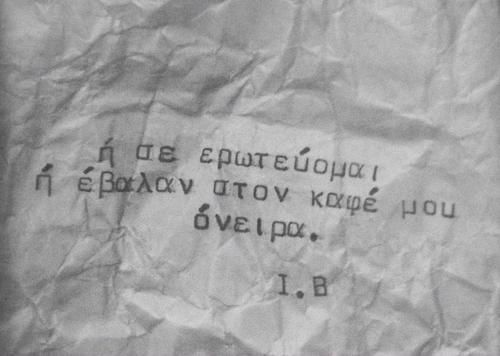 ή σε ερωτεύομαι
ή έβαλαν στον καφέ μου
όνειρα.
Ι.Β